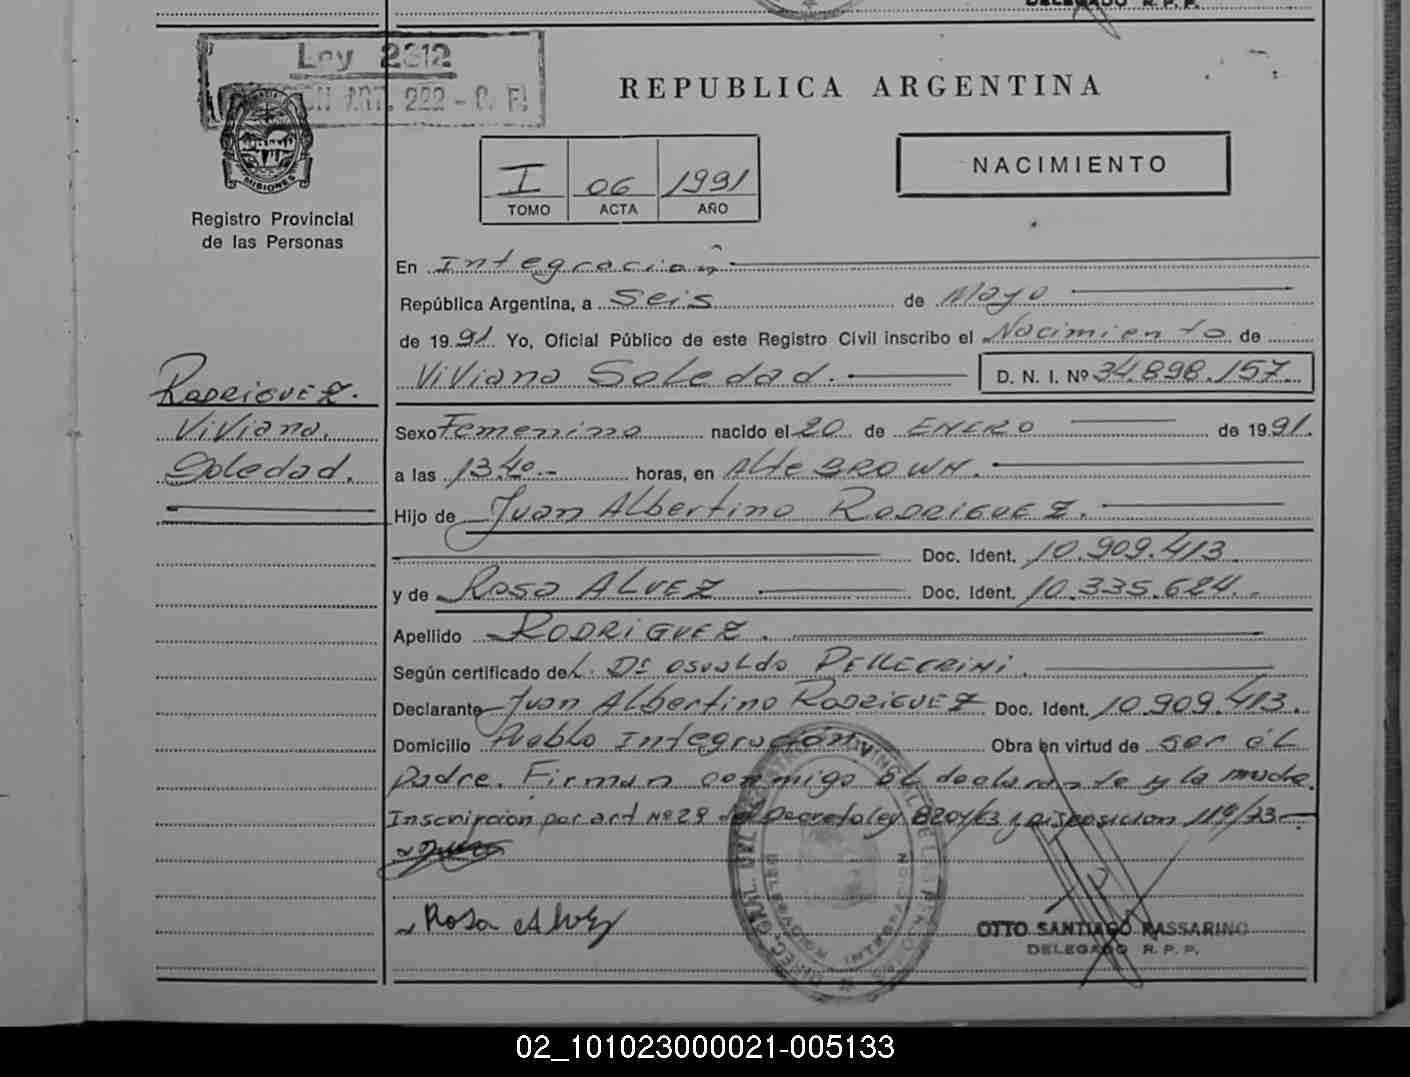 DELEGADO R. P. P.
Ley 2312
ART. 222 -
REPUBLICA ARGENTINA
MISIONES
Registro Provincial
de las Personas
I 06 1991
TOMO ACTA AÑO
NACIMIENTO
En Integración
República Argentina, a Seis de Mayo
de 1991. Yo, Oficial Público de este Registro Civil inscribo el Nacimiento de
Viviana Soledad. D. N. I. Nº 34.898.157
RODRIGUEZ.
Viviana.
Soledad.
Sexo Femenino nacido el 20 de ENERO de 1991.
a las 13.40.- horas, en Alte BROWN.
Hijo de Juan Albertino RODRIGUEZ.
Doc. Ident. 10.909.413
y de Rosa ALVEZ Doc. Ident. 10.335.624.
Apellido RODRIGUEZ.
Según certificado del. Dr Osvaldo PELLEGRINI.
Declarante Juan Albertino RODRIGUEZ Doc. Ident. 10.909.413.
Domicilio Pueblo Integración Obra en virtud de ser él
padre. Firman conmigo el declarante y la madre.
Inscripcion por art Nº 29 del Decreto ley 8204/63 y disposicion 119/73
Rosa Alvez
OTTO SANTIAGO PASSARINO
DELEGADO R. P. P.
02_101023000021-005133